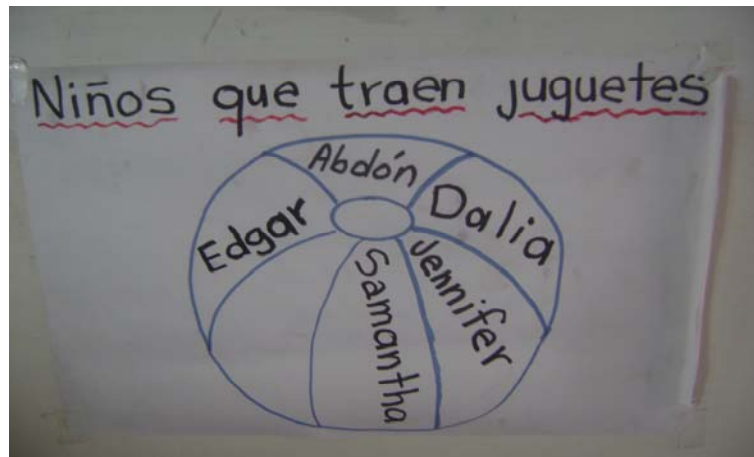 Niños que traen juguetes
Abdón
Dalia
Edgar
Jennifer
Samantha